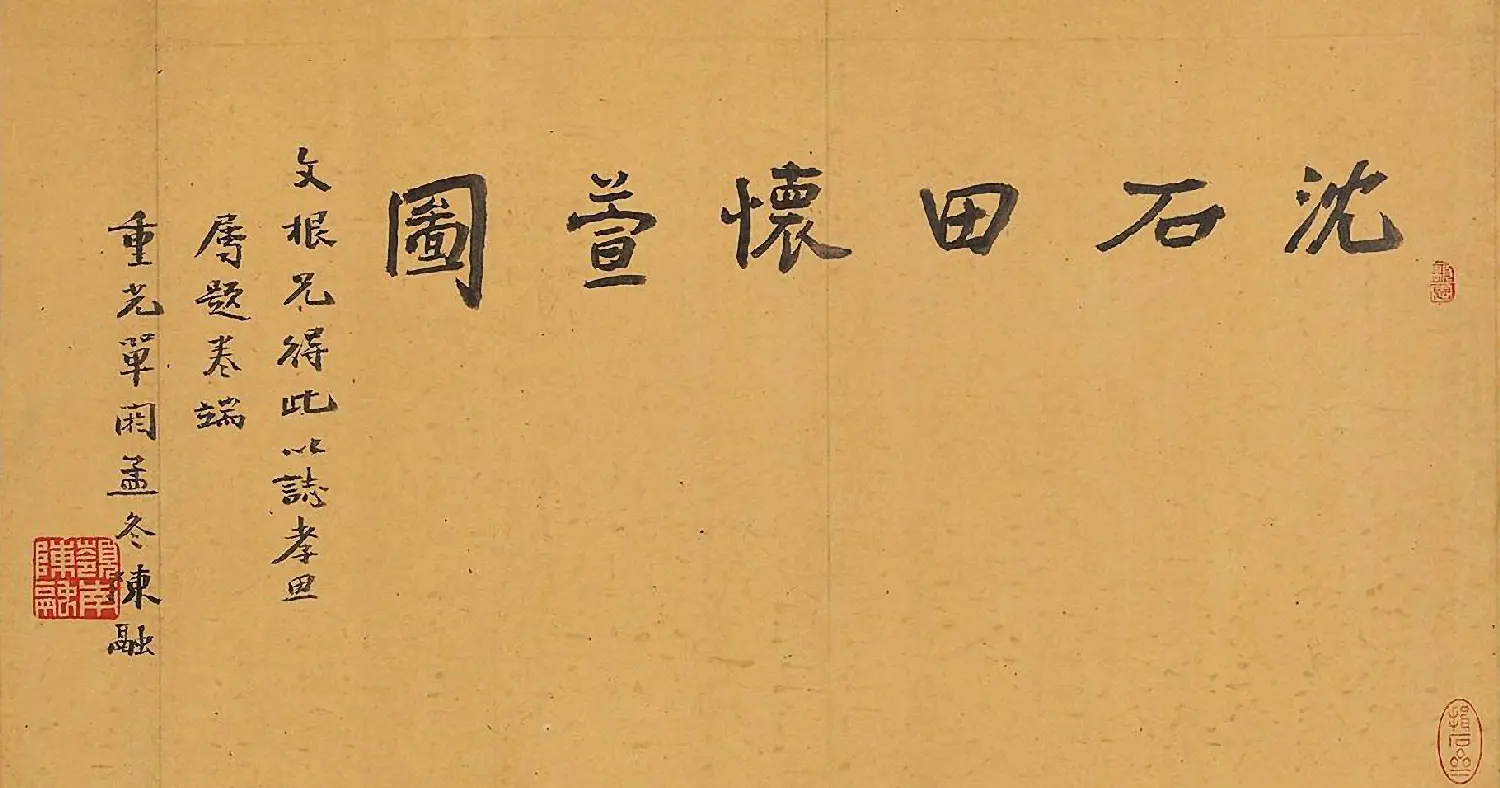 沈石田懷萱圖
文根兄得此以誌孝思
屬題卷端
重光單閼孟冬陳融
嶺南陳融